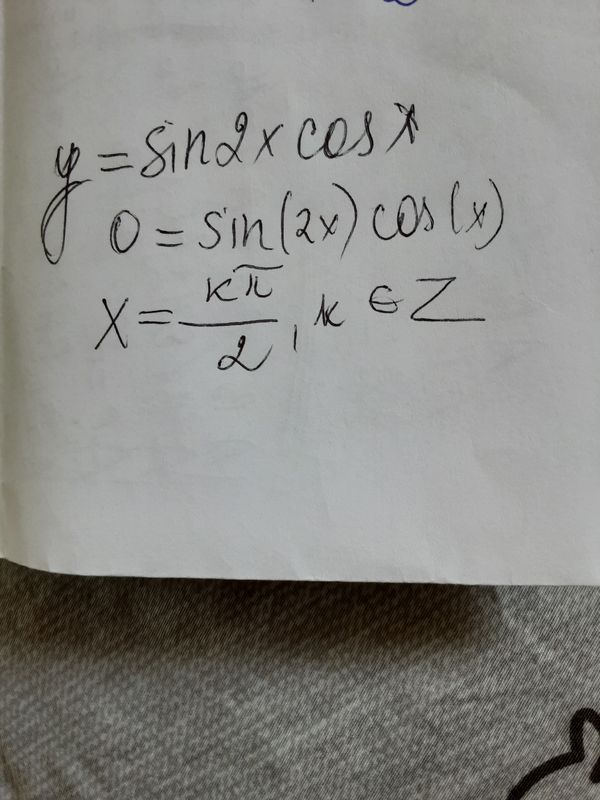 y = sin2x cos x
0 = sin(2x) cos(x)
x = кπ/2, к ∈ Z